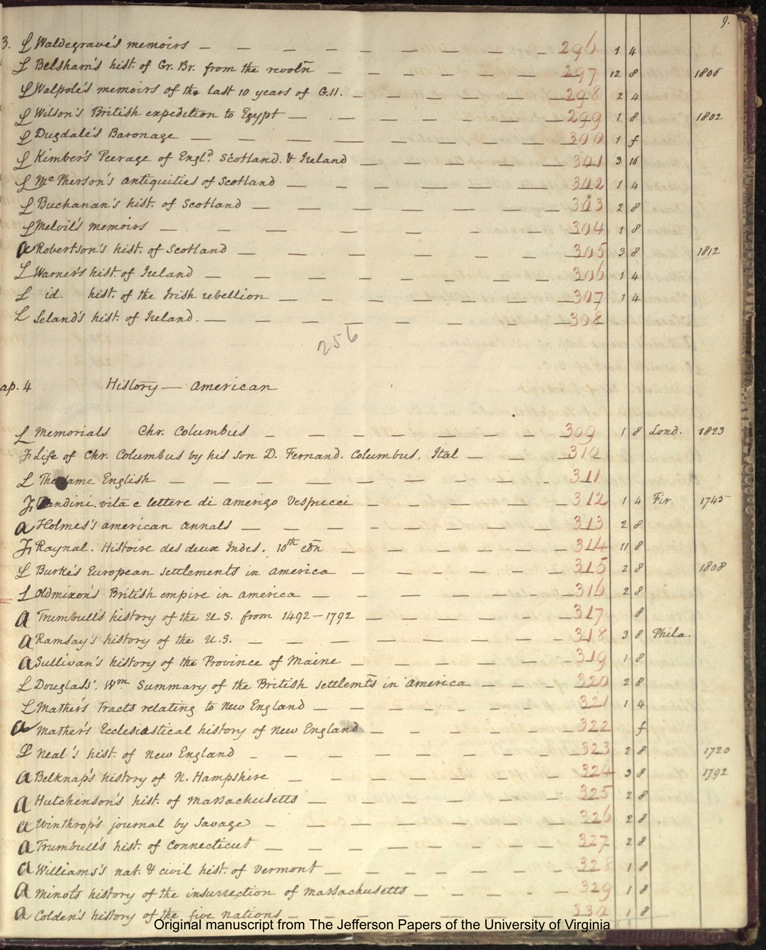 9.
3. L Waldegrave's memoirs — 296 1 4
L Belsham's hist. of Gr. Br. from the revoln̄ 297 12 8 1806
L Walpole's memoirs of the last 10 years of G.II. 298 2 4
L Wilson's British expedition to Egypt — 299 1 8 1802
L Dugdale's Baronage — 300 1 f
L Kimber's Peerage of Engld. Scotland. & Ireland — 301 3 16
L McPherson's antiquities of Scotland — 302 1 4
L Buchanan's hist. of Scotland — 303 2 8
L Melvil's memoirs — 304 1 8
a Robertson's hist. of Scotland — 305 3 8 1812
L Warner's hist. of Ireland — 306 1 4
L id. hist. of the Irish rebellion — 307 1 4
L Leland's hist. of Ireland. — 308
256
ap. 4 History — American
L Memorials Chr. Columbus — 309 1 8 Lond. 1823
F Life of Chr. Columbus by his son D. Fernand. Columbus. Ital — 310
L The same English — 311
F Bandini. vita e lettere di Amerigo Vespucci — 312 1 4 Fir. 1745
a Holmes's american annals — 313 2 8
F Raynal. Histoire des deux Indes. 10th edn̄ — 314 11 8
L Burke's European settlements in america — 315 2 8 1808
L Oldmixon's British empire in america — 316 2 8
a Trumbull's history of the U.S. from 1492–1792 — 317 8
a Ramsay's history of the U.S. — 318 3 8 Phila.
a Sullivan's history of the Province of Maine — 319 1 8
L Douglass'. Wm Summary of the British settlemts̄ in america — 320 2 8
L Mather's Tracts relating to New England — 321 1 4
a Mather's Ecclesiastical history of New England — 322 f
L Neal's hist. of New England — 323 2 8 1720
a Belknap's history of N. Hampshire — 324 3 8 1792
a Hutchenson's hist. of Massachusetts — 325 2 8
a Winthrop's journal by Savage — 326 2 8
a Trumbull's hist. of Connecticut — 327 2 8
a Williams's nat. & civil hist. of Vermont — 328 1 8
a Minot's history of the insurrection of Massachusetts — 329 1 8
a Colden's history of the five nations — 330 1 8
Original manuscript from The Jefferson Papers of the University of Virginia